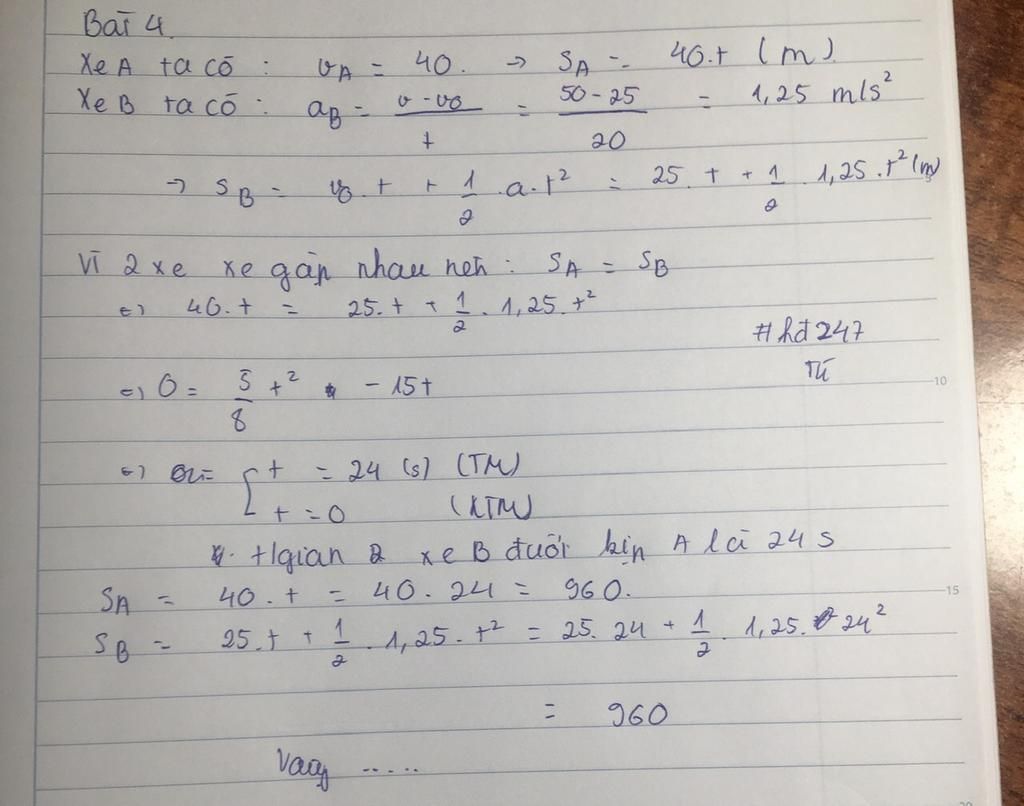 Bài 4.
Xe A ta có : vA = 40. → SA = 40.t (m).
Xe B ta có : aB = (v - v0)/t = (50 - 25)/20 = 1,25 m/s²
→ SB = v0.t + 1/2 .a.t² = 25.t + 1/2 . 1,25.t² (m)
Vì 2 xe xe gặp nhau nên : SA = SB
⇔ 40.t = 25.t + 1/2 . 1,25.t²
#hđ247
Tú
10
⇔ 0 = 5/8 t² - 15t
⇔ [ t = 24 (s) (TM)
t = 0 (KTM)
t/gian 2 xe B đuổi kịp A là 24 s
SA = 40.t = 40.24 = 960.
15
SB = 25.t + 1/2 . 1,25.t² = 25.24 + 1/2 . 1,25. 24²
= 960
Vậy .....